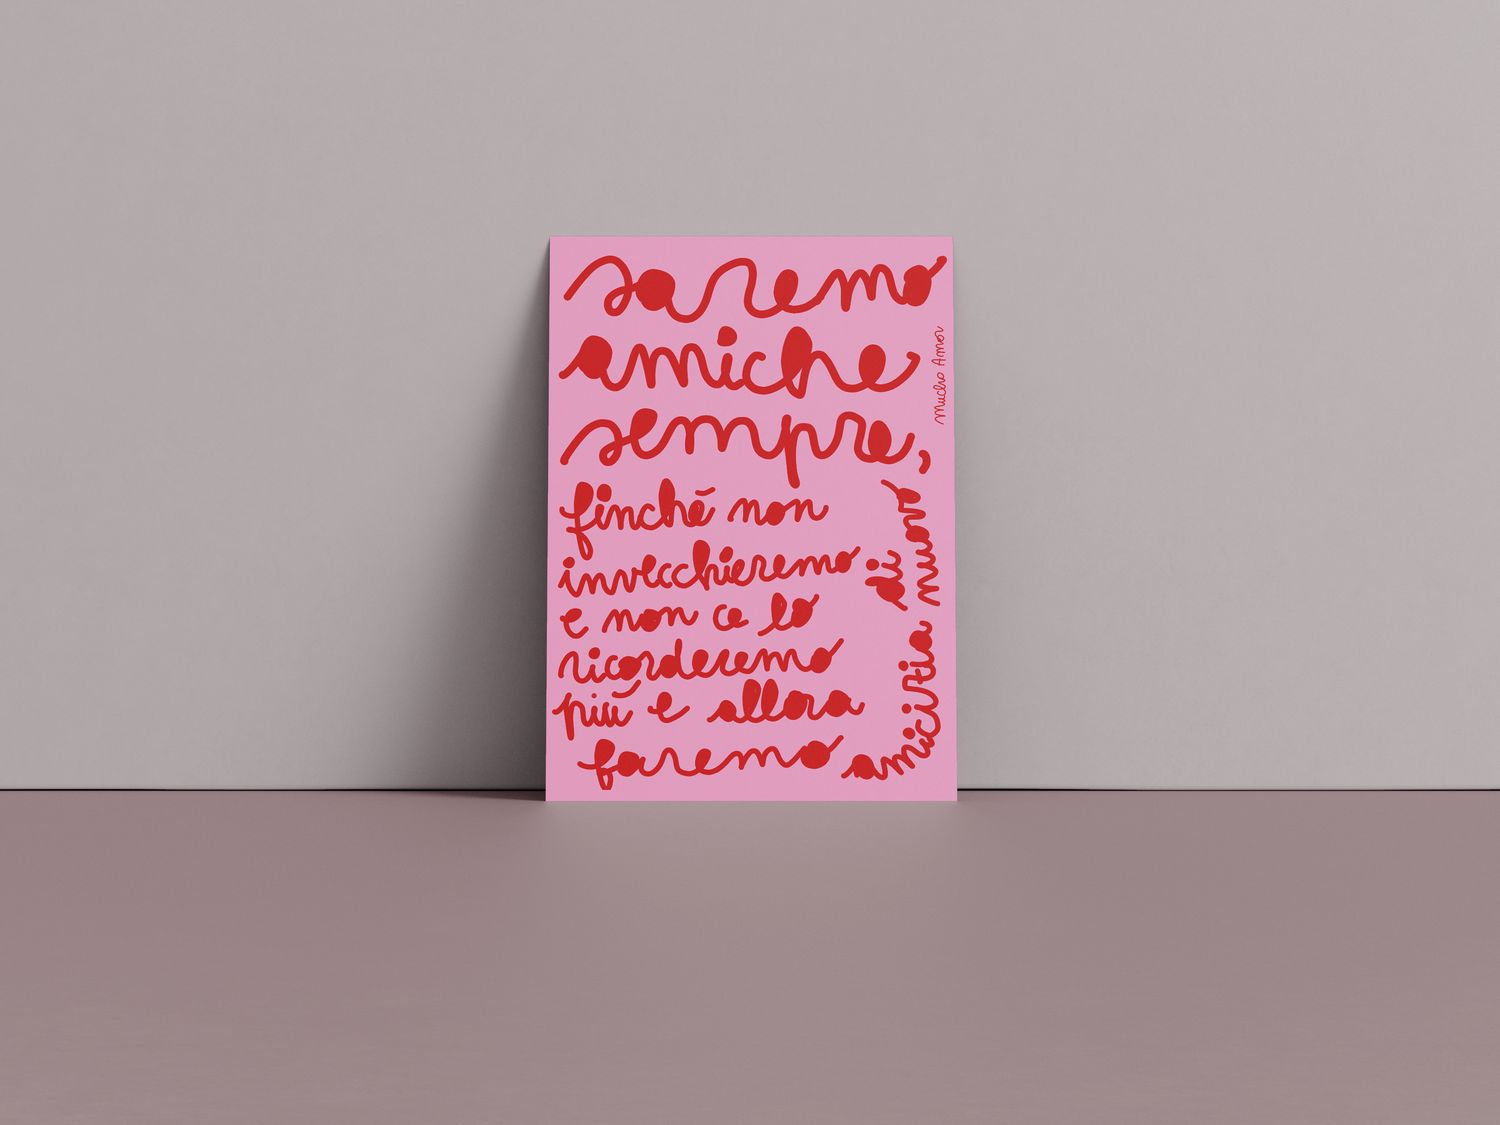 saremo
amiche
sempre,
finché non
invecchieremo
e non ce lo
ricorderemo
più e allora
faremo amicizia
di nuovo
Mucho Amor